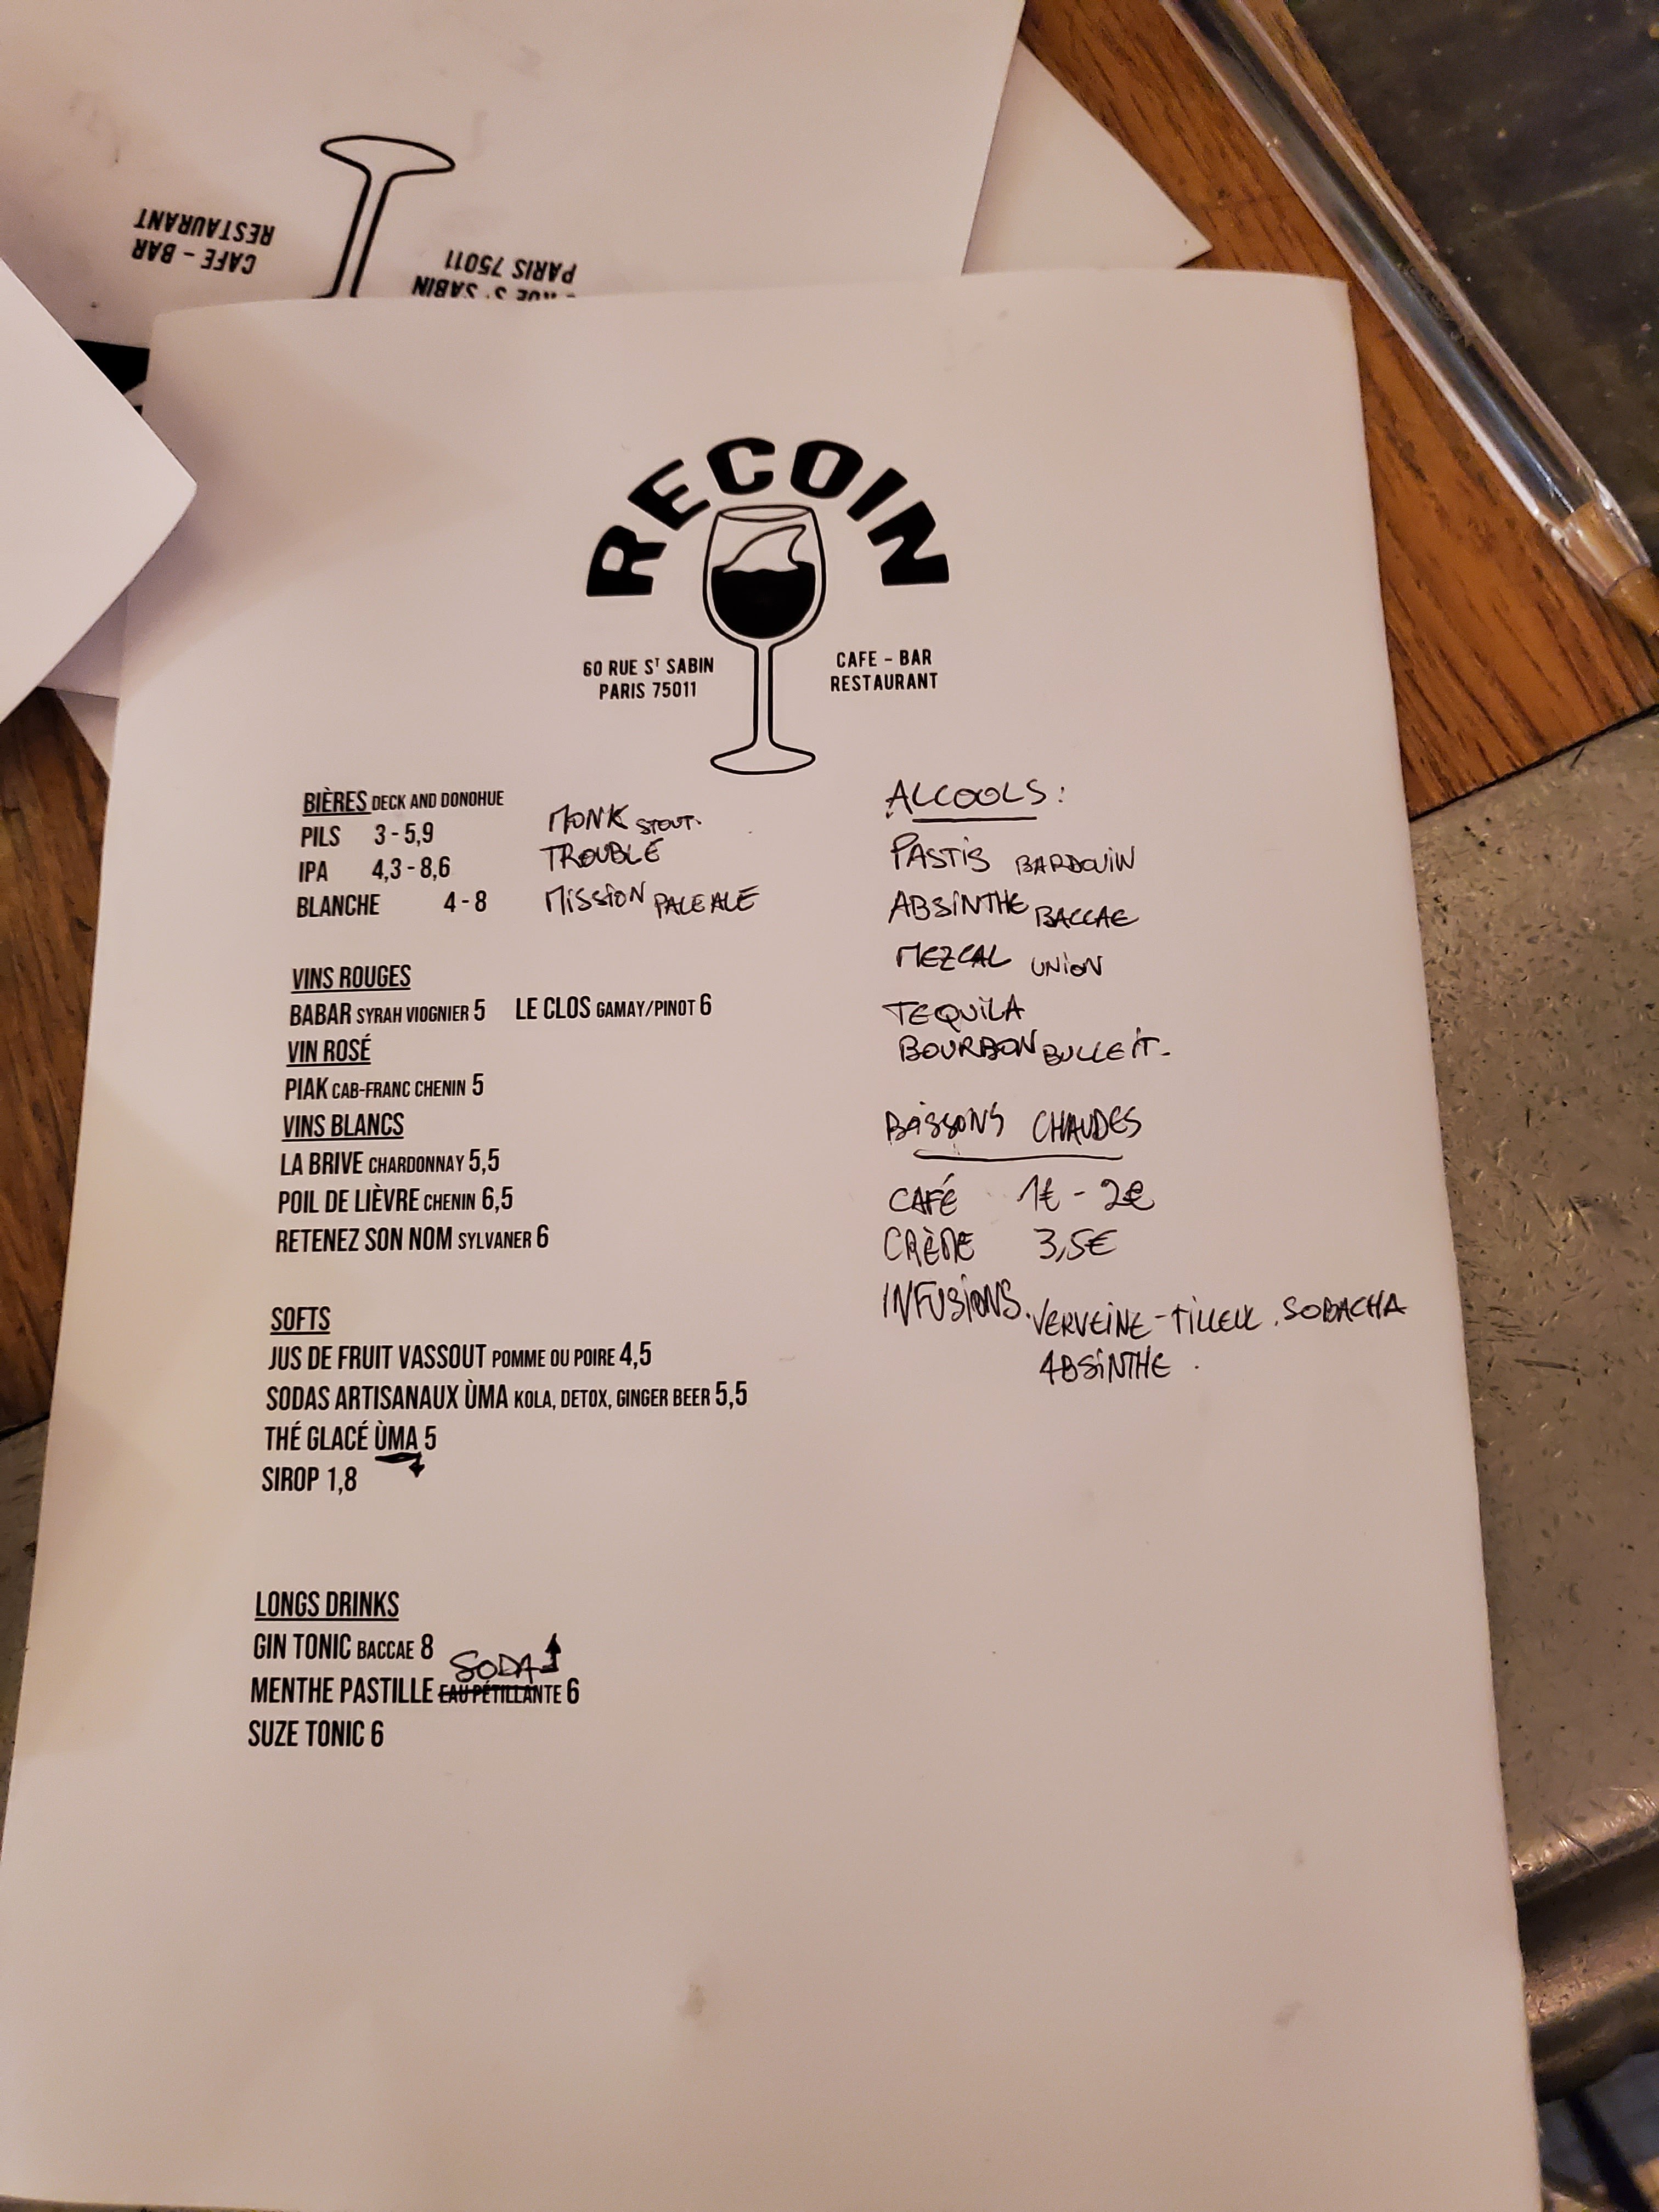 CAFE - BAR
RESTAURANT
RUE Sᵀ SABIN
PARIS 75011
RECOIN
60 RUE Sᵀ SABIN
PARIS 75011
CAFE - BAR
RESTAURANT
BIÈRES DECK AND DONOHUE
PILS 3 - 5,9
IPA 4,3 - 8,6
BLANCHE 4 - 8
MONK STOUT.
TROUBLE
MISSION PALE ALE
VINS ROUGES
BABAR SYRAH VIOGNIER 5 LE CLOS GAMAY/PINOT 6
VIN ROSÉ
PIAK CAB-FRANC CHENIN 5
VINS BLANCS
LA BRIVE CHARDONNAY 5,5
POIL DE LIÈVRE CHENIN 6,5
RETENEZ SON NOM SYLVANER 6
SOFTS
JUS DE FRUIT VASSOUT POMME OU POIRE 4,5
SODAS ARTISANAUX ÙMA KOLA, DETOX, GINGER BEER 5,5
THÉ GLACÉ ÙMA 5
SIROP 1,8
LONGS DRINKS
GIN TONIC BACCAE 8
SODA
MENTHE PASTILLE EAU PÉTILLANTE 6
SUZE TONIC 6
ALCOOLS :
PASTIS BARDOUIN
ABSINTHE BACCAE
MEZCAL UNION
TEQUILA
BOURBON BULLEIT.
BOISSONS CHAUDES
CAFÉ 1€ - 2€
CRÈME 3,5€
INFUSIONS. VERVEINE - TILLEUL . SOBACHA
ABSINTHE .